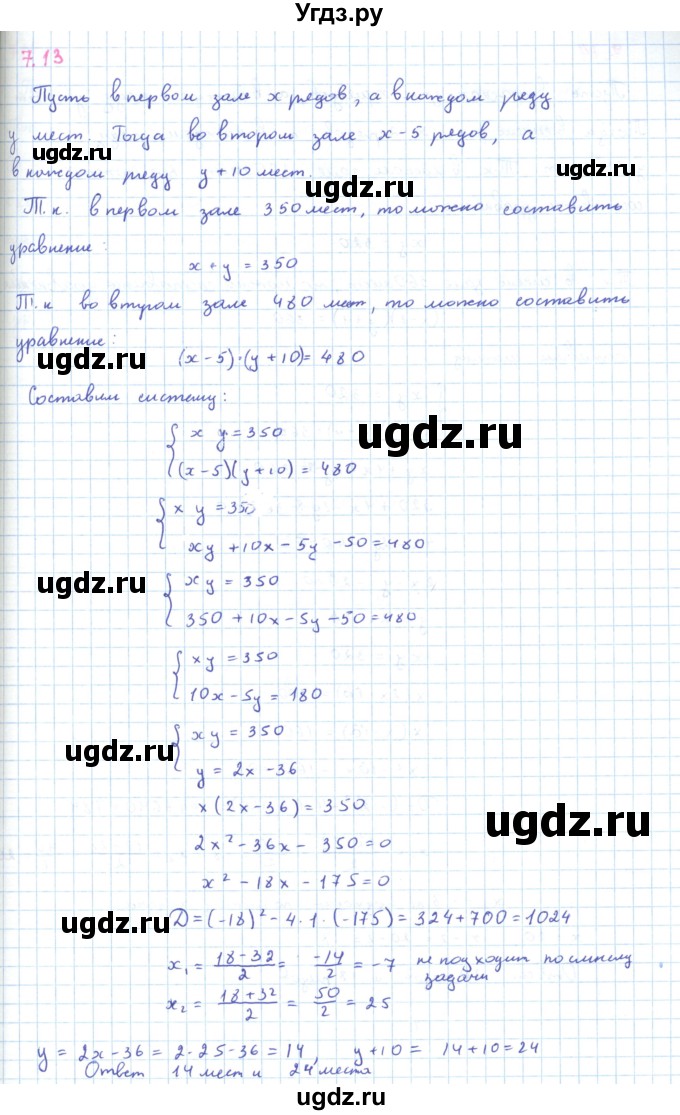 Угдз.ру
7.13
Пусть в первом зале x рядов, а в каждом ряду
y мест. Тогда во втором зале x-5 рядов, а
ugdz.ru
ugdz.ru
в каждом ряду y+10 мест.
ugdz.ru
Т.к. в первом зале 350 мест, то можно составить
уравнение:
x+y=350
Т.к во втуром зале 480 мест, то можно составить
уравнение:
ugdz.ru
(x-5)·(y+10)=480
Составим систему:
{ x y=350
ugdz.ru
(x-5)(y+10)=480
{ x y=350
xy+10x-5y-50=480
ugdz.ru
{ xy=350
350+10x-5y-50=480
{ xy=350
10x-5y=180
{ xy=350
ugdz.ru
y=2x-36
x(2x-36)=350
ugdz.ru
2x²-36x-350=0
x²-18x-175=0
ugdz.ru
D=(-18)²-4·1·(-175)=324+700=1024
x₁=(18-32)/2=-14/2=-7 не подходит по смыслу
задачи
x₂=(18+32)/2=50/2=25
y=2x-36=2·25-36=14, y+10=14+10=24
Ответ 14 мест и 24 места